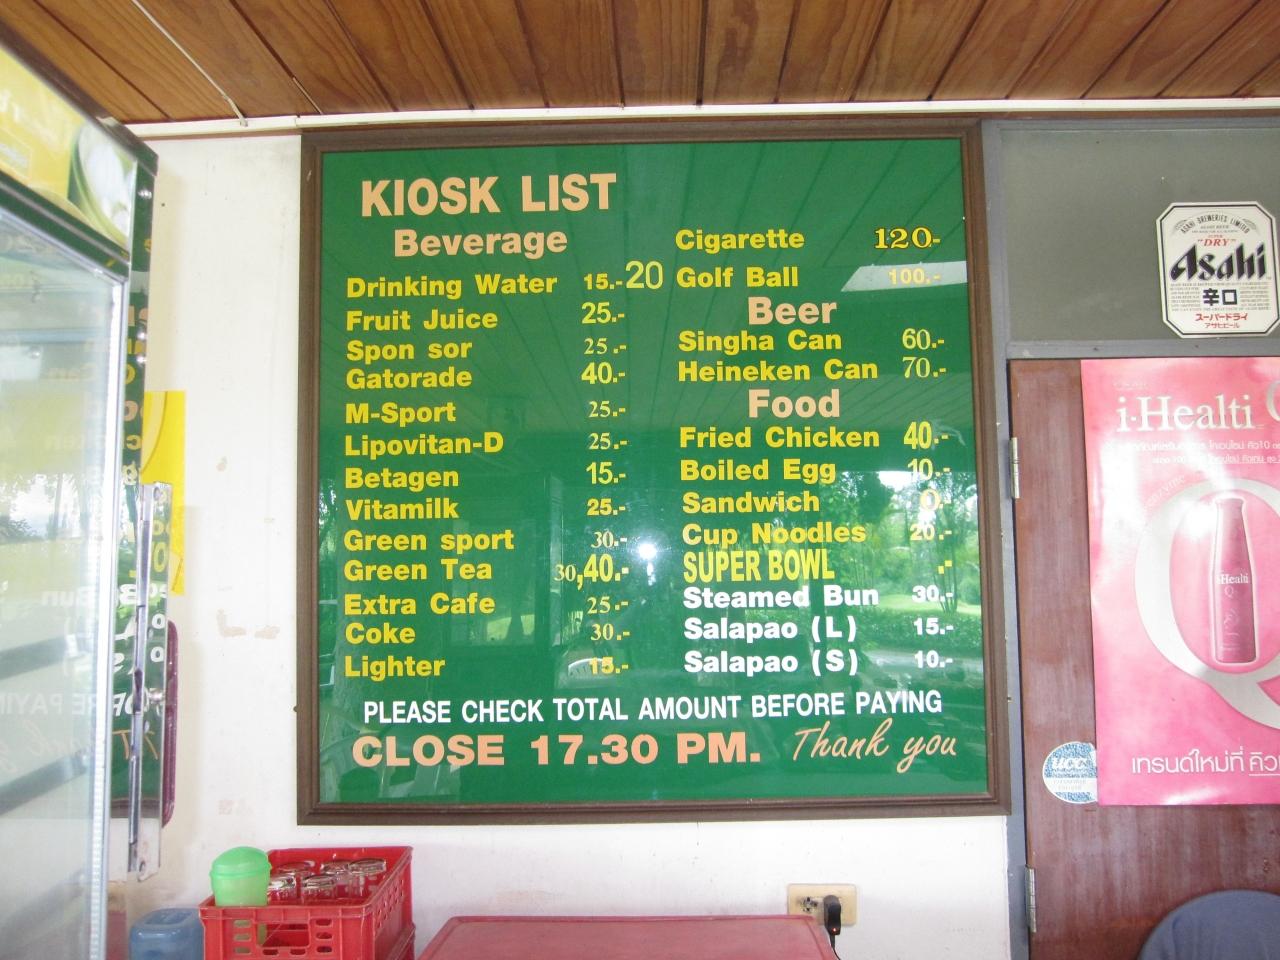 KIOSK LIST
Beverage
Drinking Water 15.-20
Fruit Juice 25.-
Spon sor 25.-
Gatorade 40.-
M-Sport 25.-
Lipovitan-D 25.-
Betagen 15.-
Vitamilk 25.-
Green sport 30.-
Green Tea 30,40.-
Extra Cafe 25.-
Coke 30.-
Lighter 15.-
Cigarette 120-
Golf Ball 100.-
Beer
Singha Can 60.-
Heineken Can 70.-
Food
Fried Chicken 40.-
Boiled Egg 10.-
Sandwich 0.-
Cup Noodles 20.-
SUPER BOWL .-
Steamed Bun 30.-
Salapao (L) 15.-
Salapao (S) 10.-
PLEASE CHECK TOTAL AMOUNT BEFORE PAYING
CLOSE 17.30 PM. Thank you
ASAHI BREWERIES LIMITED
"DRY"
Asahi
辛口
スーパードライ
アサヒビール
i-Healti
enzyme
i-Healti
Q
เทรนด์ใหม่ที่ คิว
ucc